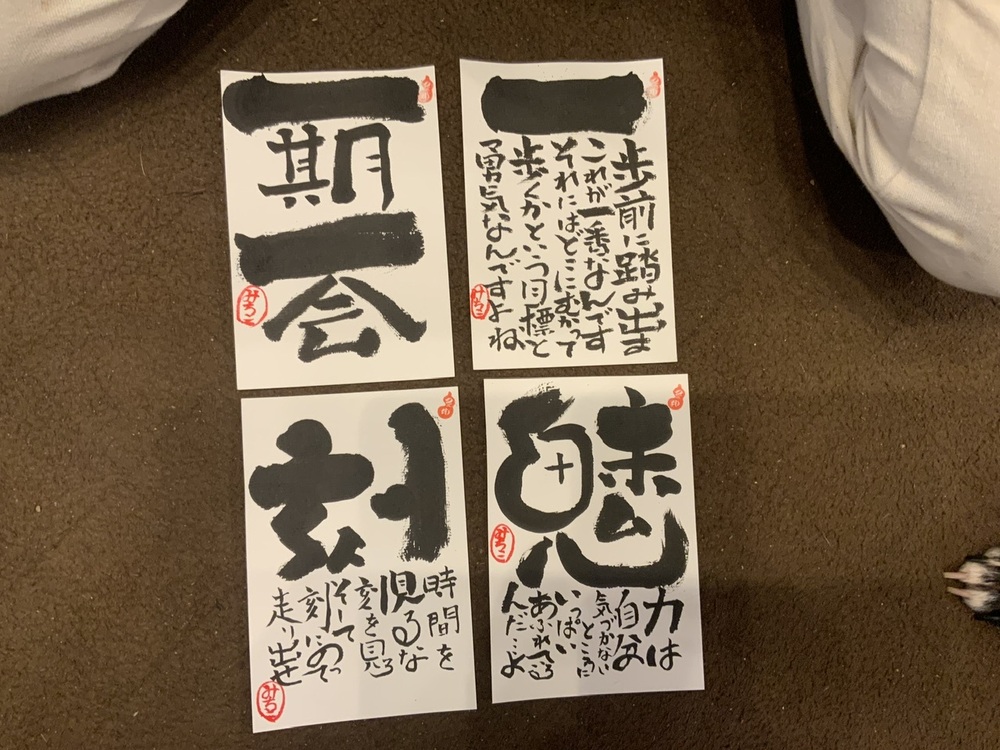 一
期
一
会
みちこ
一
歩前に踏み出ま
これが一番なんです
それにはどこにむかって
歩くかという目標と
勇気なんですよね
みちこ
刻
時間を
見るな
刻を見ろ
そして
刻にのって
走り出せ
みちこ
魅
力は
自分
気づかない
ところに
いっぱい
あふれてる
んだ…よ
みちこ